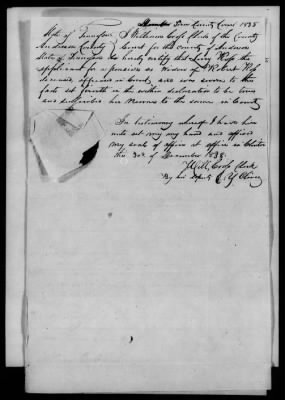 County Court 1838
State of Tennessee I William Cross Clerk of the County
Anderson County Court for the County of Anderson
State of Tennessee do hereby certify that
applicant for a pension as Widow of Robert
deceased appeared in Court and was sworn to the
facts set forth in the within declaration to be true
and subscribed her name to the same in Court
In testimony whereof I have here
unto set my my hand and affixed
my seal of office at office in Clinton
this 3rd of December 1838
Will Cross Clerk
By his Deputy Y. Oliver